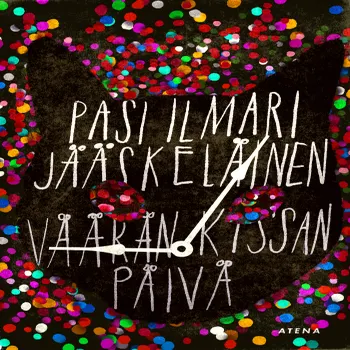 PASI ILMARI
JÄÄSKELÄINEN
VÄÄRÄN KISSAN
PÄIVÄ
ATENA